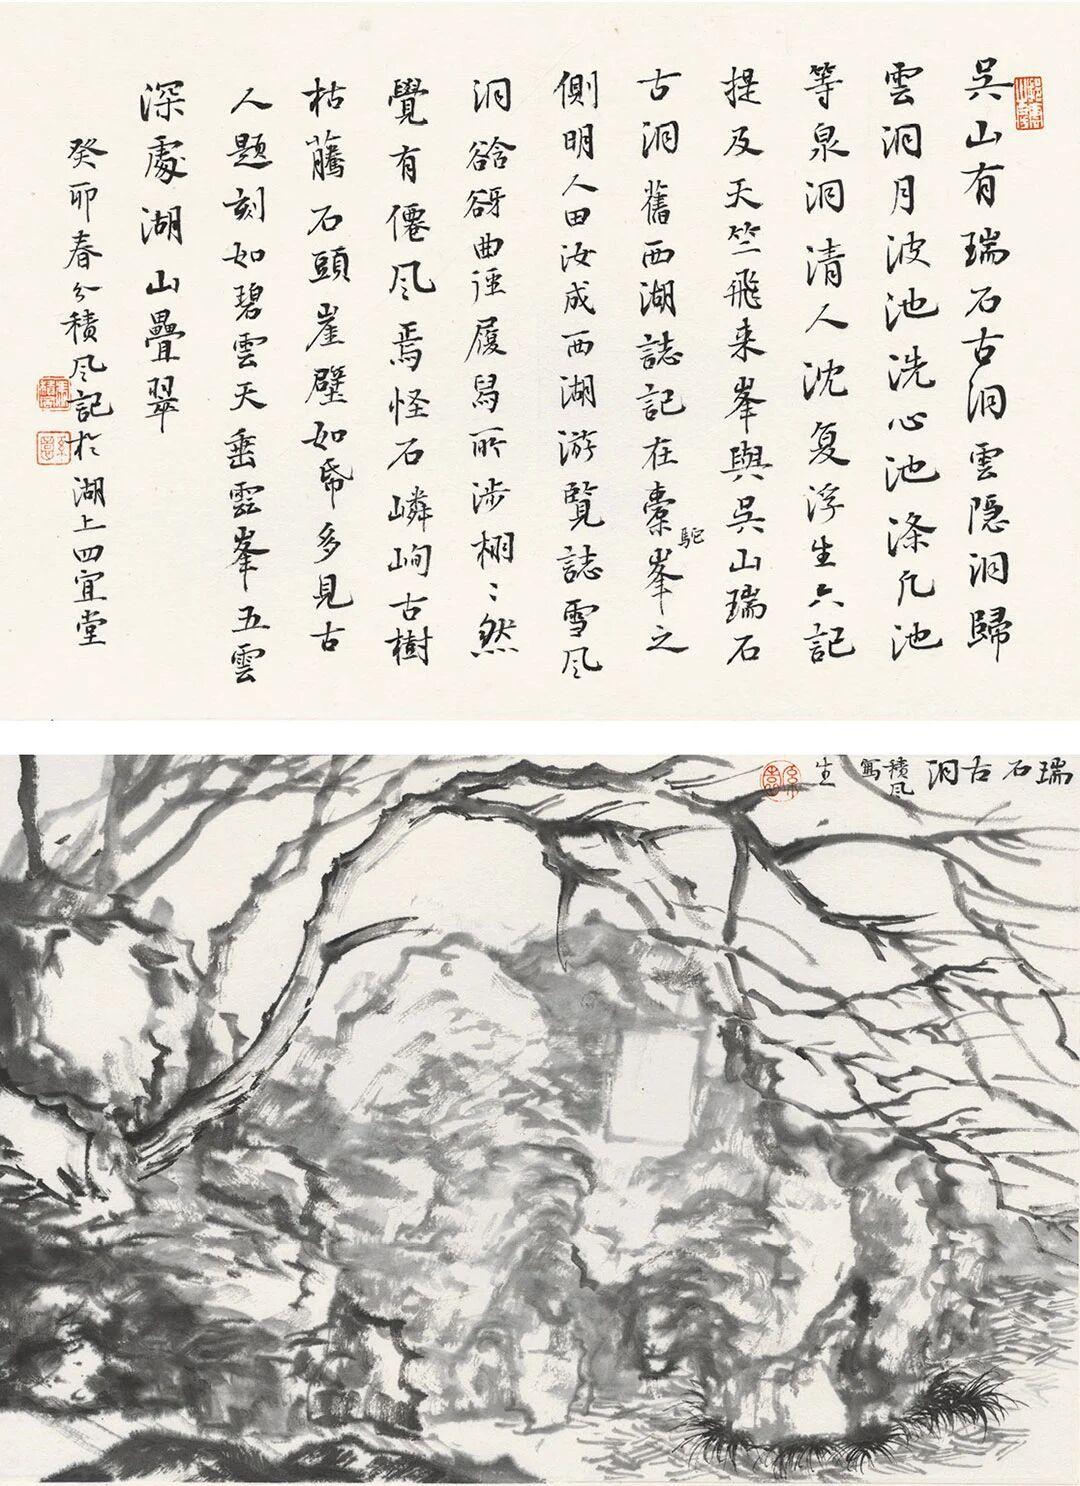 吳山有瑞石古洞雲隱洞歸
雲洞月波池洗心池滌凡池
等泉洞清人沈复浮生六記
提及天竺飛来峯與吳山瑞石
古洞舊西湖誌記在橐峯之
駝
側明人田汝成西湖游覽誌雪风
洞谽谺曲徑履舄所涉栩〻然
覺有僊风焉怪石嶙峋古樹
枯藤石頭崖壁如帋多見古
人題刻如碧雲天垂雲峯五雲
深處湖山疊翠
癸卯春分積风記於湖上四宜堂
瑞石古洞
積风寫
生